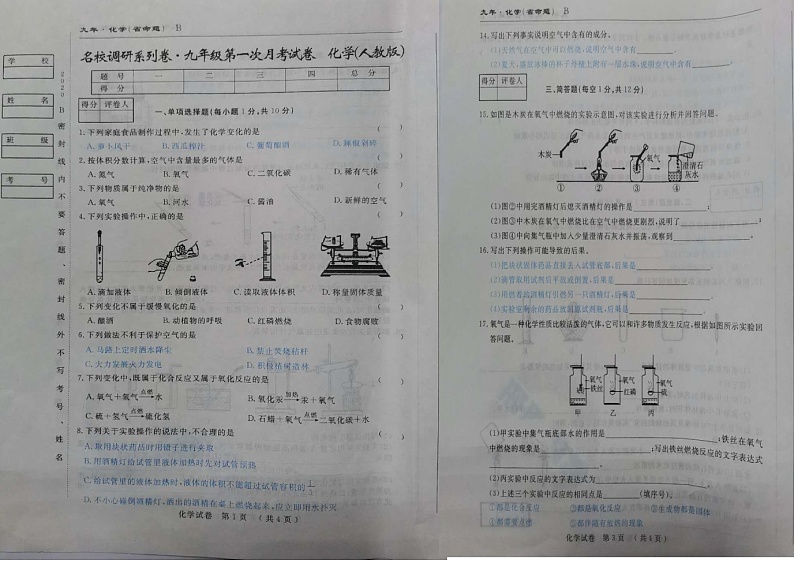 九年·化学(省命题) B
名校调研系列卷·九年级第一次月考试卷 化学(人教版)
题 号 一 二 三 四 总 分
得 分
得分 评卷人
一、单项选择题(每小题1分,共10分)
1.下列家庭食品制作过程中,发生了化学变化的是 ( )
A.萝卜风干 B.西瓜榨汁 C.葡萄酿酒 D.辣椒剁碎
2.按体积分数计算,空气中含量最多的气体是 ( )
A.氮气 B.氧气 C.二氧化碳 D.稀有气体
3.下列物质属于纯净物的是 ( )
A.氧气 B.河水 C.酱油 D.新鲜的空气
4.下列实验操作中,正确的是 ( )
A.滴加液体 B.倾倒液体 C.读取液体体积 D.称量固体质量
5.下列变化不属于缓慢氧化的是 ( )
A.酿酒 B.动植物的呼吸 C.红磷燃烧 D.食物腐败
6.下列做法不利于保护空气的是 ( )
A.马路上定时洒水降尘 B.禁止焚烧秸秆
C.火力发展火力发电 D.积极植树造林
7.下列变化中,既属于化合反应又属于氧化反应的是 ( )
A.氧气+氢气 点燃 水 B.氧化汞 加热 汞+氧气
C.硫+氢气 点燃 硫化氢 D.石蜡+氧气 点燃 二氧化碳+水
8.下列关于实验操作的说法中,不合理的是 ( )
A.取用块状药品时用镊子进行夹取
B.用酒精灯给试管里液体加热时先对试管预热
C.给试管里的液体加热时,液体的体积不能超过试管容积的1/3
D.不小心碰倒酒精灯,洒出的酒精在桌上燃烧起来,应立即用水扑灭
化学试卷 第1页 (共4页)
学 校
姓 名
班 级
考 号
2020B密封线内不要答题、密封线外不写考号、姓名
九年·化学(省命题) B
14.写出下列事实说明空气中含有的成分。
(1)天然气在空气中可以燃烧,说明空气中含有
(2)夏天,盛放冰棒的杯子外壁上附有一层水珠,说明空气中含有
得分 评卷人
三、简答题(每空1分,共12分)
15.如图是木炭在氧气中燃烧的实验示意图,对该实验进行分析并回答问题。
木炭 氧气 澄清石灰水
① ② ③ ④
(1)图②中用完酒精灯后熄灭酒精灯的操作是 ;
(2)图③中木炭在氧气中燃烧比在空气中燃烧更剧烈,说明了 ;
(3)图④中向集气瓶中加入少量澄清石灰水并振荡,观察到 。
16.写出下列操作可能导致的后果。
(1)把块状固体药品直接丢入试管底部,后果是
(2)滴管取用试剂后平放或倒置,后果是
(3)用燃着的酒精灯引燃另一只酒精灯,后果是
(4)实验室剩余的药品放回原试剂瓶,后果是
17.氧气是一种化学性质比较活泼的气体,它可以和许多物质发生反应,根据如图所示实验回
答问题。
氧气 铁丝 氧气 红磷 氧气 硫
甲 乙 丙
(1)甲实验中集气瓶底部水的作用是 ;铁丝在氧气
中燃烧的现象是 ;写出铁丝燃烧反应的文字表达式
。
(2)丙实验中反应的文字表达式为 。
(3)上述三个实验中反应的相同点是 (填序号)。
①都是化合反应 ②都是氧化反应 ③生成物都是固体
④都需要点燃 ⑤都伴随有放热的现象
化学试卷 第3页 (共4页)